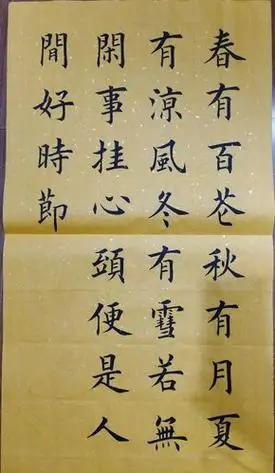 春有百花秋有月夏
有涼風冬有雪若無
閑事挂心頭便是人
間好時節